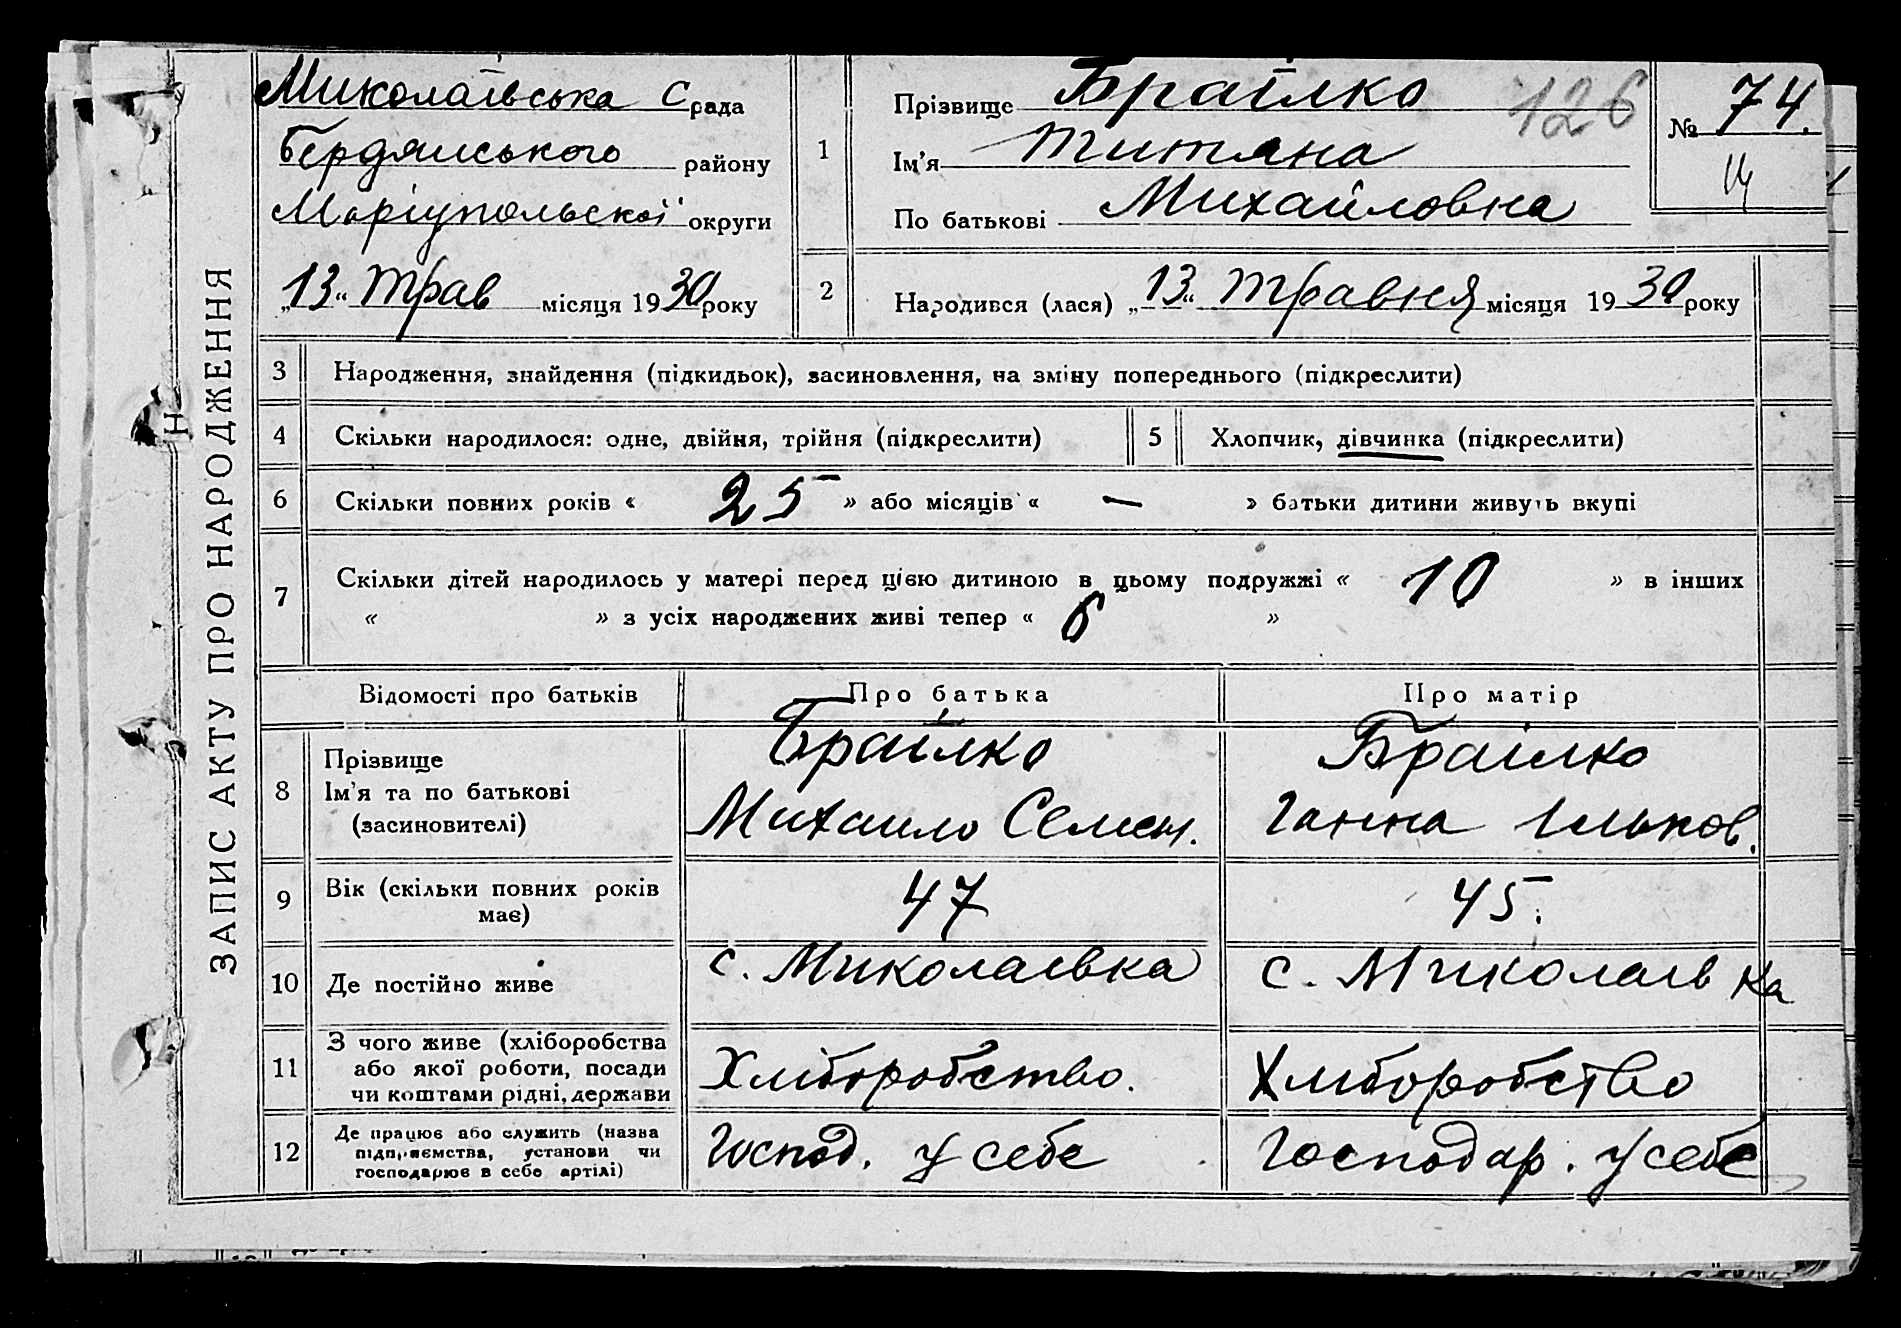 ЗАПИС АКТУ ПРО НАРОДЖЕННЯ
Миколаівська С рада
Бердянського району
Маріупольскої округи
„13“ трав місяця 1930 року
1
Прізвище Браілко
Ім’я Титяна
По батькові Михайловна
126
№ 74.
2
Народився (лася) „13“ травня місяця 1930 року
3 Народження, знайдення (підкидьок), засиновлення, на зміну попереднього (підкреслити)
4 Скільки народилося: одне, двійня, трійня (підкреслити) 5 Хлопчик, дівчинка (підкреслити)
6 Скільки повних років « 25 » або місяців « — » батьки дитини живуть вкупі
7 Скільки дітей народилось у матері перед цією дитиною в цьому подружжі « 10 » в інших
« » з усіх народжених живі тепер « 6 »
Відомості про батьків Про батька Про матір
8 Прізвище
Ім’я та по батькові
(засиновителі)
Браілко
Михаило Семен.
Браілко
Ганна Ільков.
9 Вік (скільки повних років
має)
47
45.
10 Де постійно живе
с. Миколаівка
с. Миколаівка
11 З чого живе (хліборобства
або якої роботи, посади
чи коштами рідні, держави
Хліборобство.
Хліборобство
12 Де працює або служить (назва
підприємства, установи чи
господарює в себе артілі)
Господ. у себе
Господар. у себе